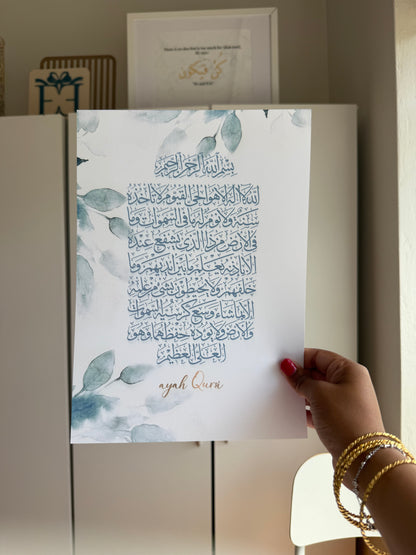 كن فيكون
بسم الله الرحمن الرحيم
الله لا إله إلا هو الحي القيوم لا تأخذه
سنة ولا نوم له ما في السموات وما
في الأرض من ذا الذي يشفع عنده
إلا بإذنه يعلم ما بين أيديهم وما
خلفهم ولا يحيطون بشيء من علمه
إلا بما شاء وسع كرسيه السموات
والأرض ولا يؤده حفظهما وهو
العلي العظيم
ayah Qursi